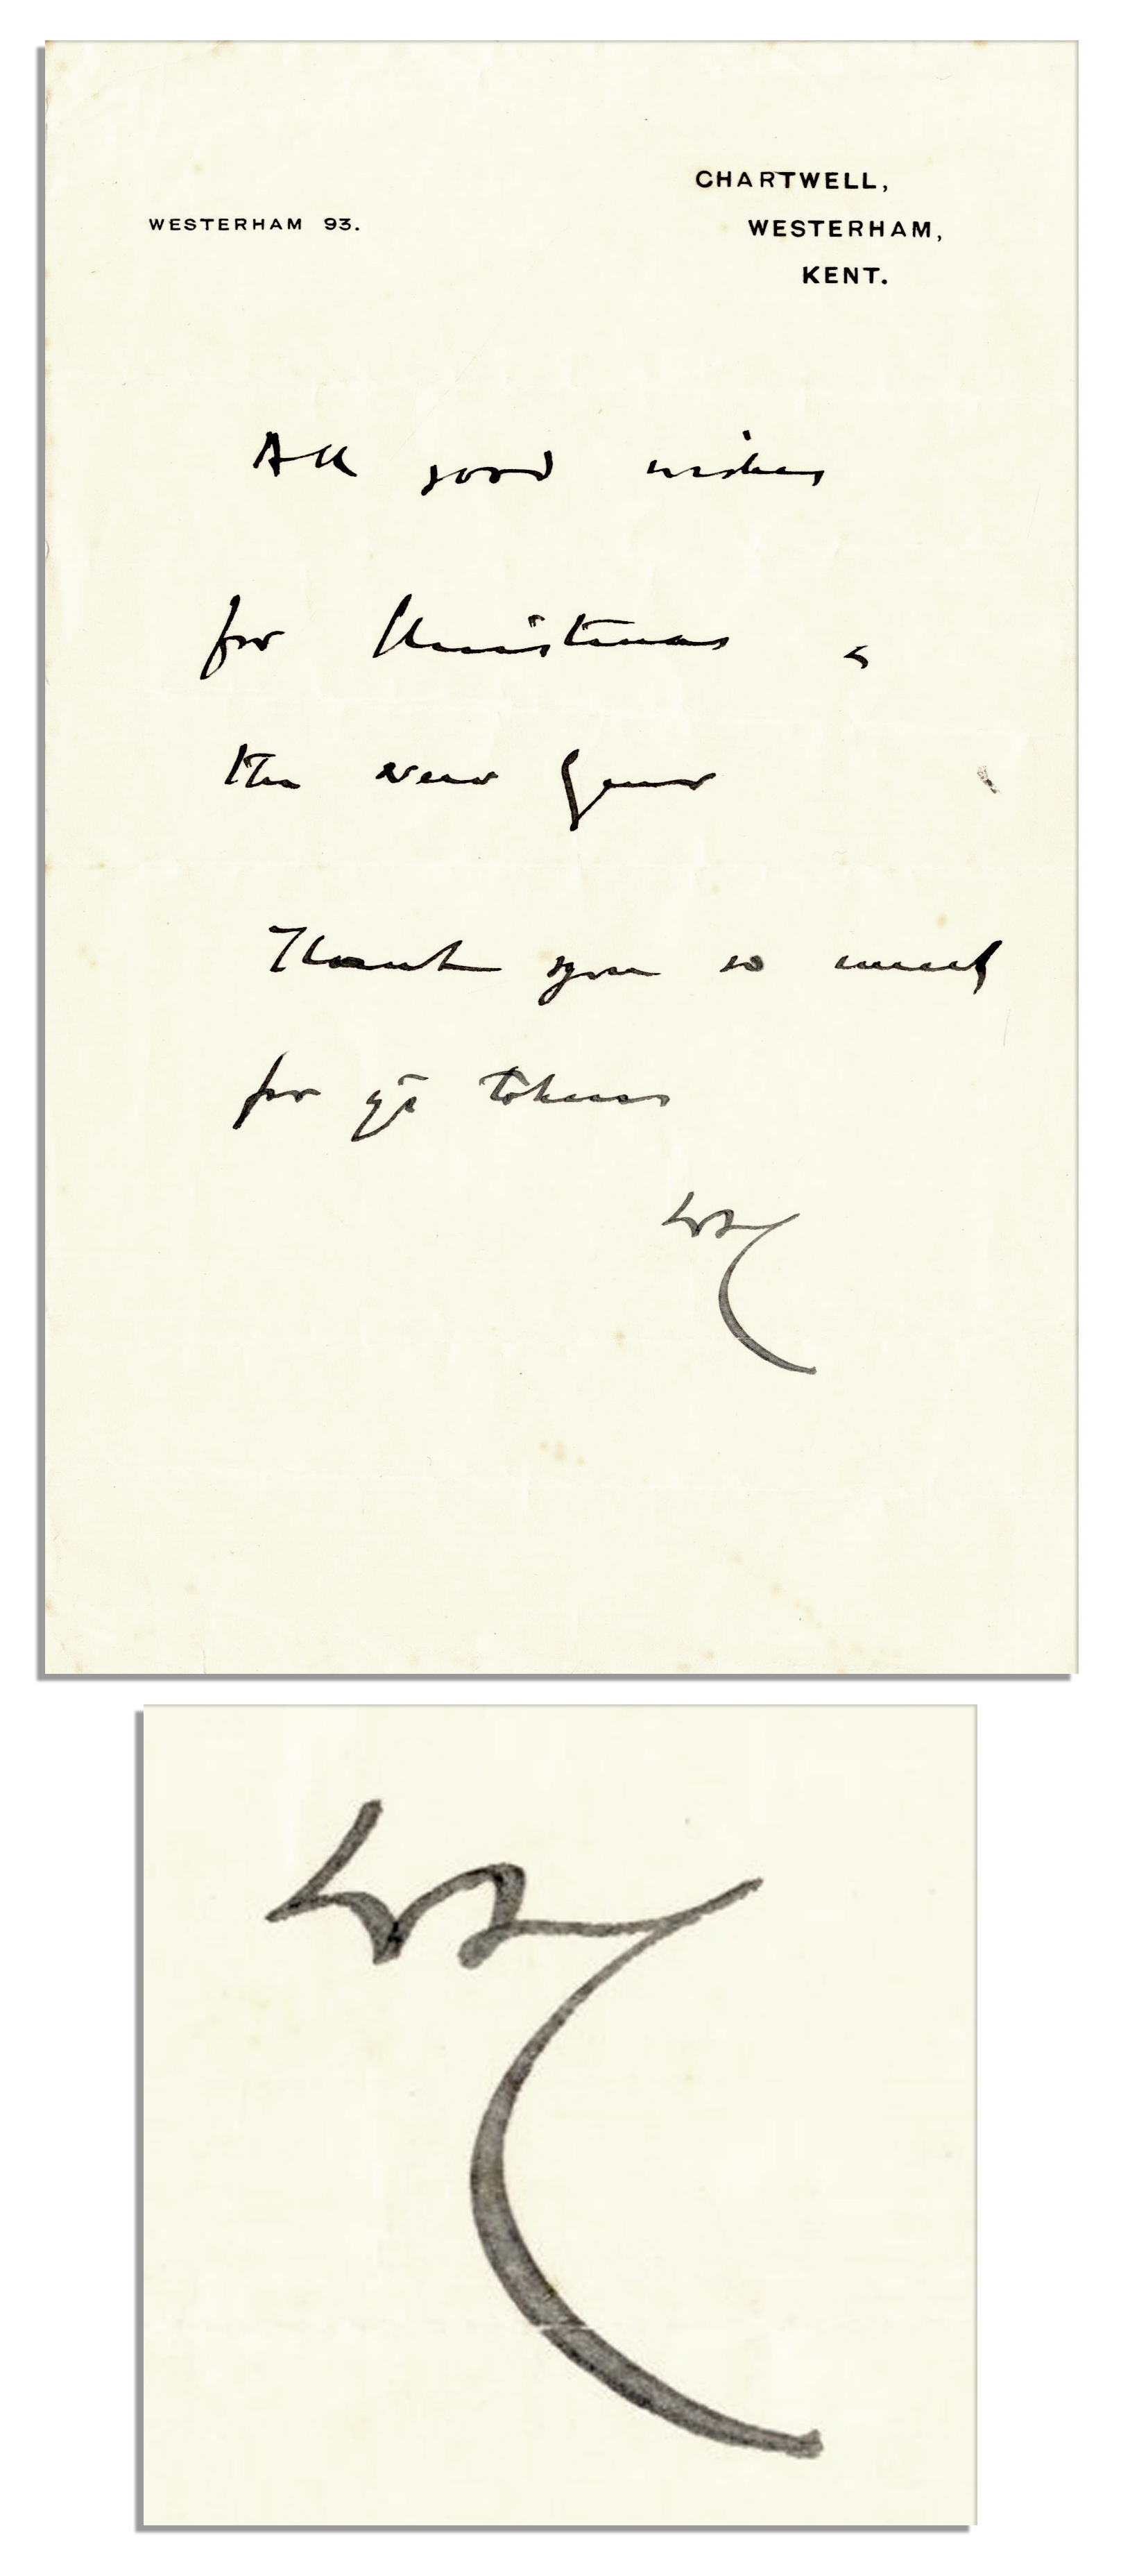 CHARTWELL,
WESTERHAM 93.
WESTERHAM,
KENT.
All good wishes
for Christmas &
the new Year
Thank you so much
for yr tokens
WSC
WSC